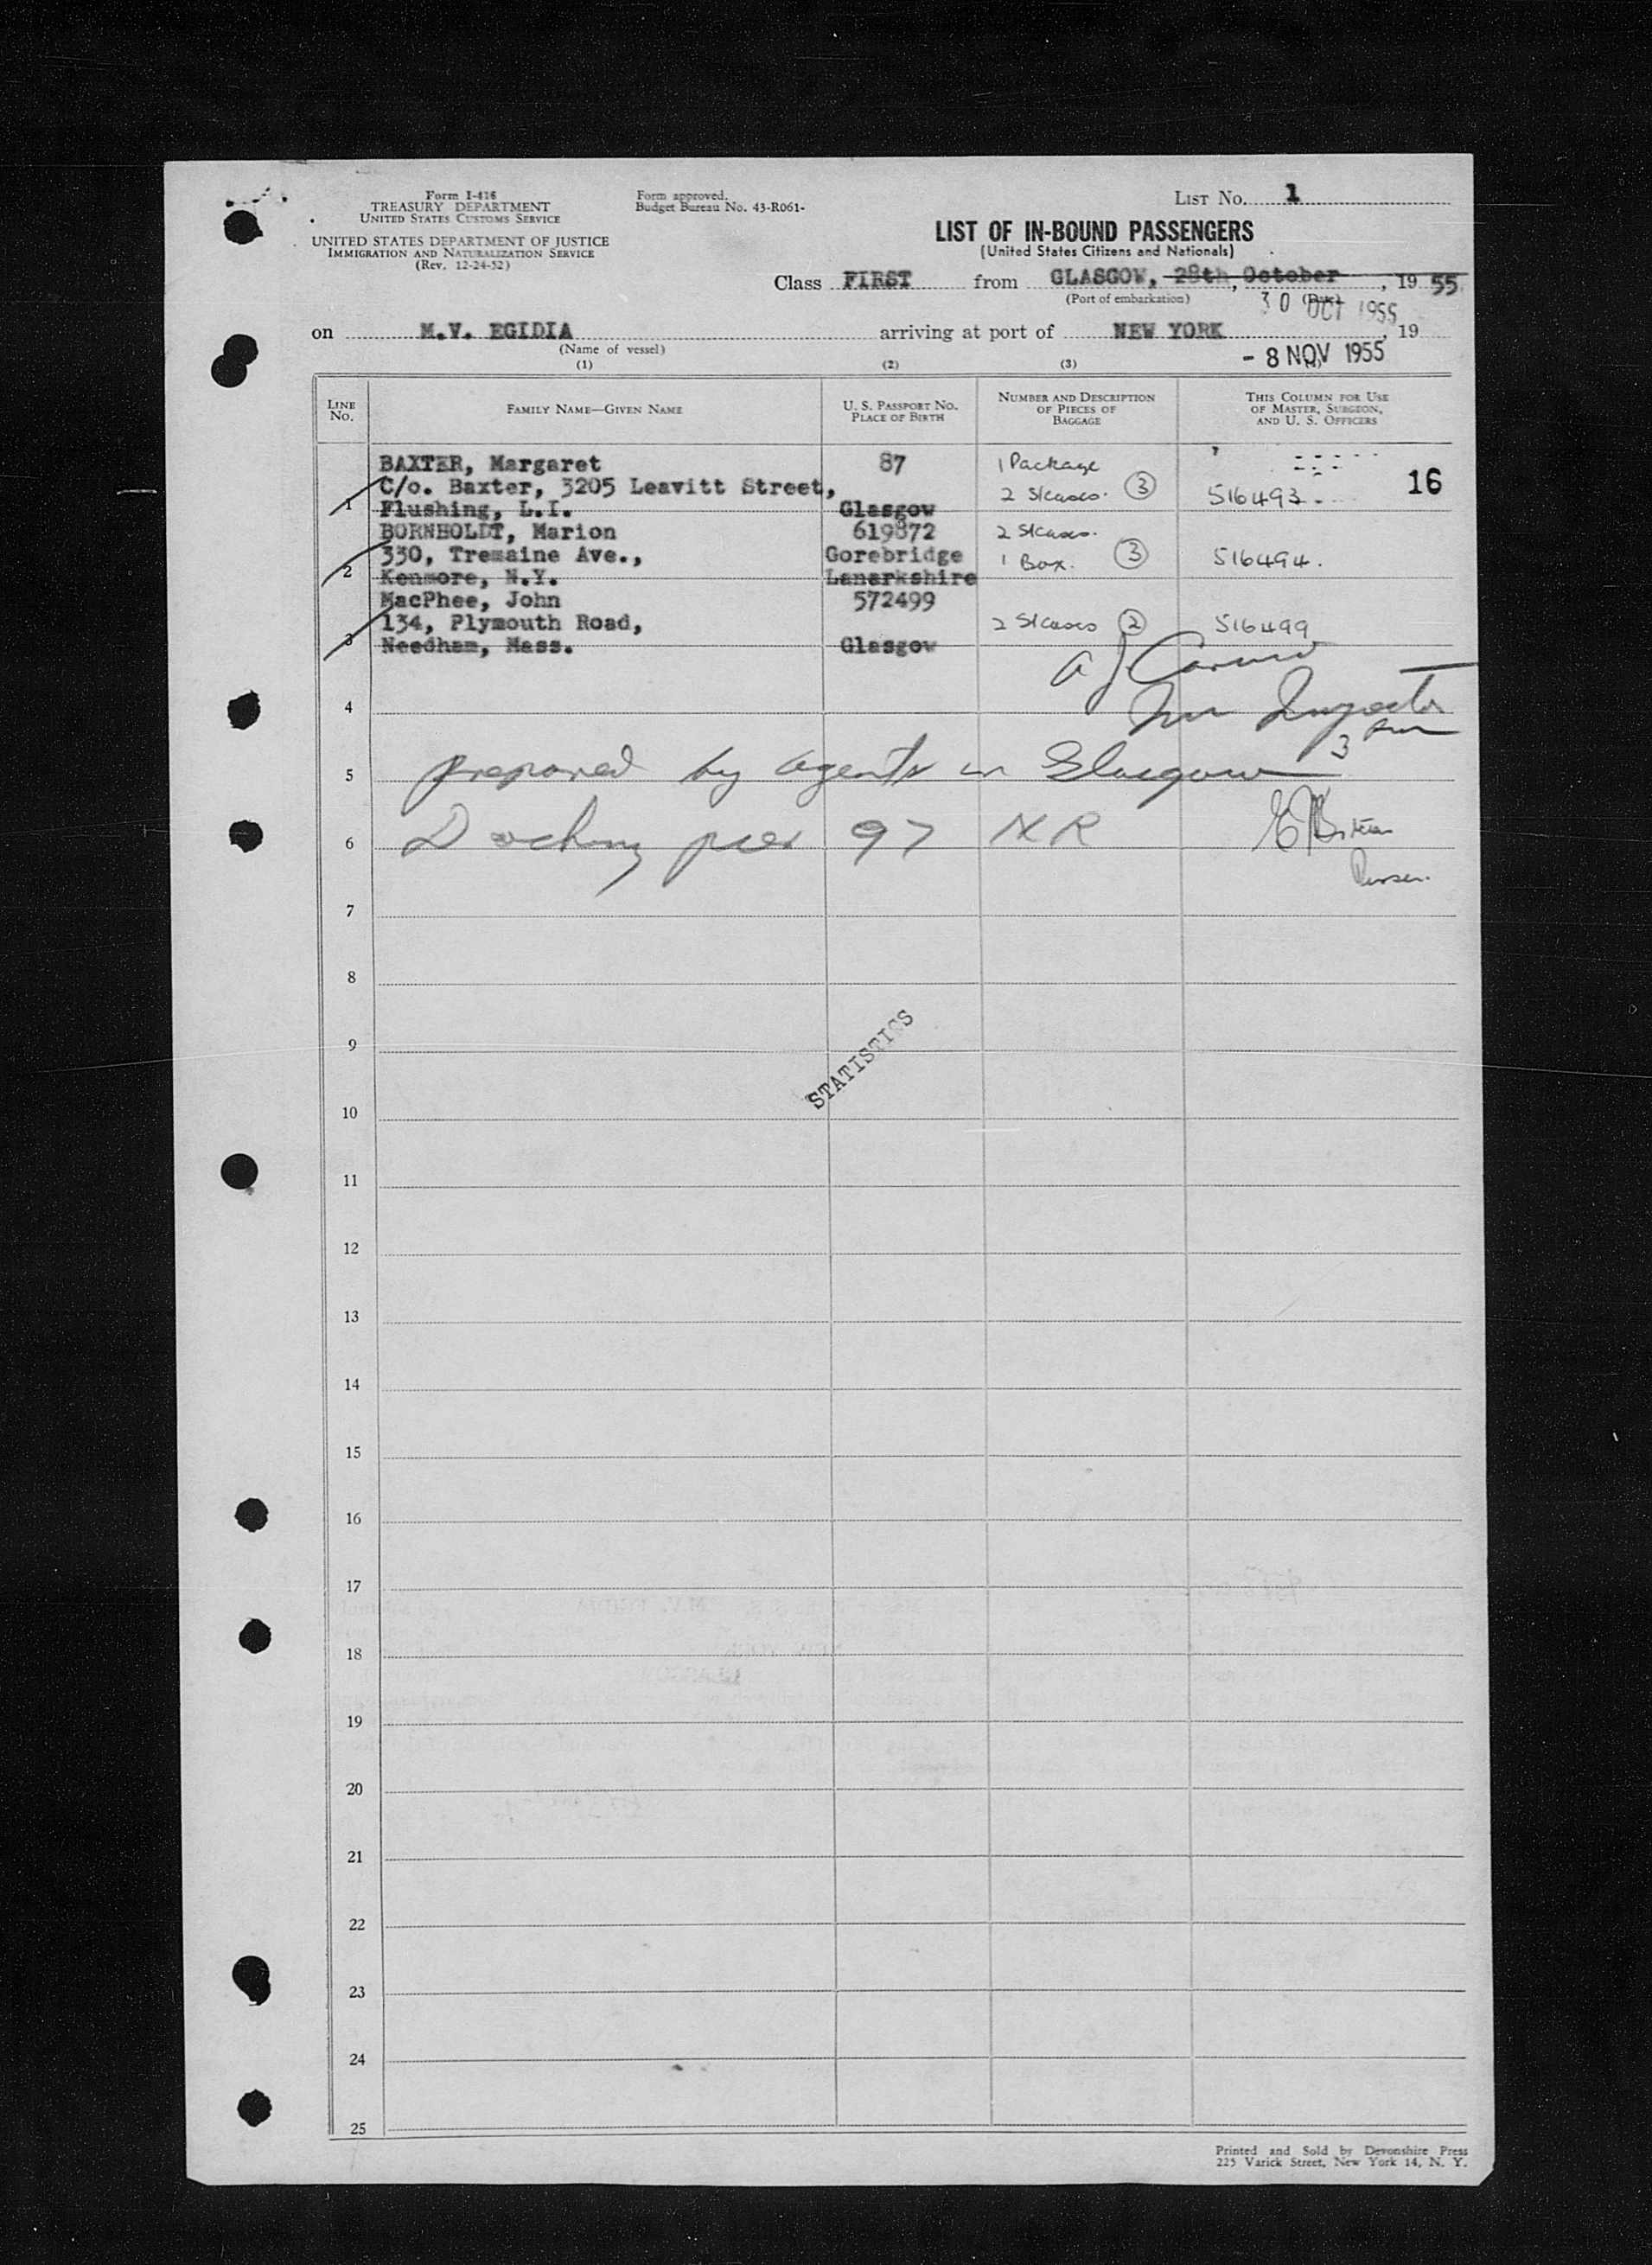 Form I-416
TREASURY DEPARTMENT
UNITED STATES CUSTOMS SERVICE
UNITED STATES DEPARTMENT OF JUSTICE
IMMIGRATION AND NATURALIZATION SERVICE
(Rev. 12-24-52)
Form approved.
Budget Bureau No. 43-R061-
LIST No. 1
LIST OF IN-BOUND PASSENGERS
(United States Citizens and Nationals)
Class FIRST from GLASGOW, 28th, October, 19 55
(Port of embarkation) (Date)
30 OCT 1955
on M.V. EGIDIA arriving at port of NEW YORK, 19
(Name of vessel)
- 8 NOV 1955
(1) (2) (3) (4)
LINE No. FAMILY NAME—GIVEN NAME U. S. PASSPORT No. PLACE OF BIRTH NUMBER AND DESCRIPTION OF PIECES OF BAGGAGE THIS COLUMN FOR USE OF MASTER, SURGEON, AND U. S. OFFICERS
BAXTER, Margaret 87 1 Package
C/o. Baxter, 3205 Leavitt Street, 2 S/cases. 3 516493 16
1 Flushing, L.I. Glasgow
BORNHOLDT, Marion 619872 2 S/cases.
330, Tremaine Ave., Gorebridge 1 Box. 3 516494.
2 Kenmore, N.Y. Lanarkshire
MacPhee, John 572499
134, Plymouth Road, 2 S/cases 2 516499
3 Needham, Mass. Glasgow
A J Caruso
4 Imm Inspector
3
5 prepared by agents in Glasgow
6 Docking pier 97 NR
Purser.
7
8
9
STATISTICS
10
11
12
13
14
15
16
17
18
19
20
21
22
23
24
25
Printed and Sold by Devonshire Press
225 Varick Street, New York 14, N. Y.